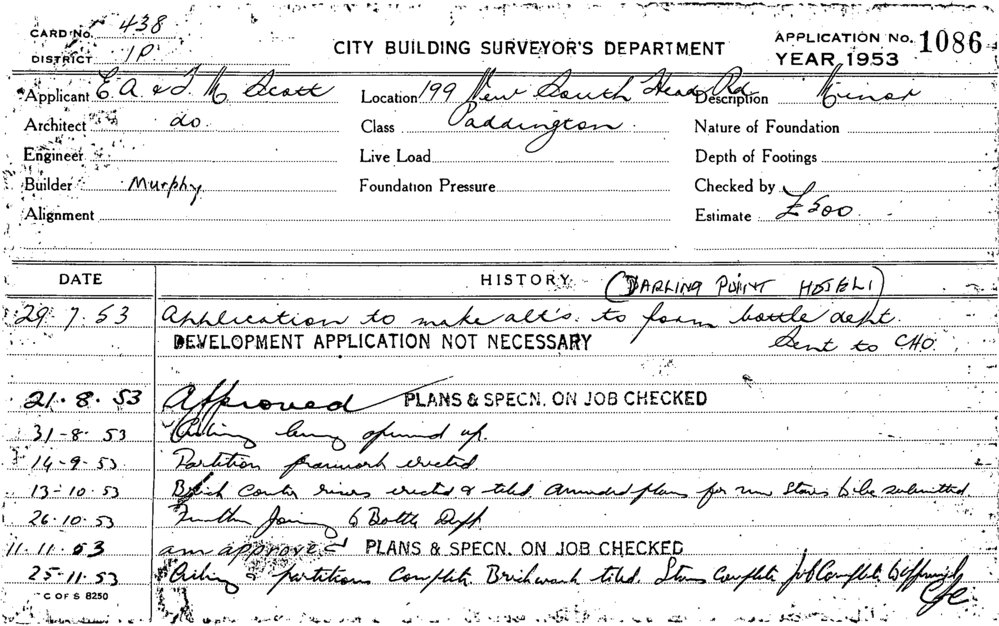 CARD No. 438
DISTRICT 1P.
CITY BUILDING SURVEYOR'S DEPARTMENT
APPLICATION No. 1086
YEAR 1953
Applicant E. A. & T. M. Scott
Location 199 New South Head Rd
Description Minor
Architect do.
Class Paddington
Nature of Foundation
Engineer
Live Load
Depth of Footings
Builder Murphy
Foundation Pressure
Checked by
Alignment
Estimate £500
DATE
HISTORY
(DARLING POINT HOTEL)
29.7.53 Application to make alt's. to form bottle dept.
DEVELOPMENT APPLICATION NOT NECESSARY Sent to CHO.
21.8.53 Approved PLANS & SPECN. ON JOB CHECKED
31-8-53 Ceiling being opened up.
14-9-53 Partition framework erected.
13-10-53 Brick erected & tiled. Amended plans for new Stairs to be submitted.
26.10.53 Further to Bottle Dept
11.11.53 am approved PLANS & SPECN. ON JOB CHECKED
25-11-53 Ceiling & partitions Complete. Brickwork tiled. Stairs Complete Job Complete
C OF S 8250